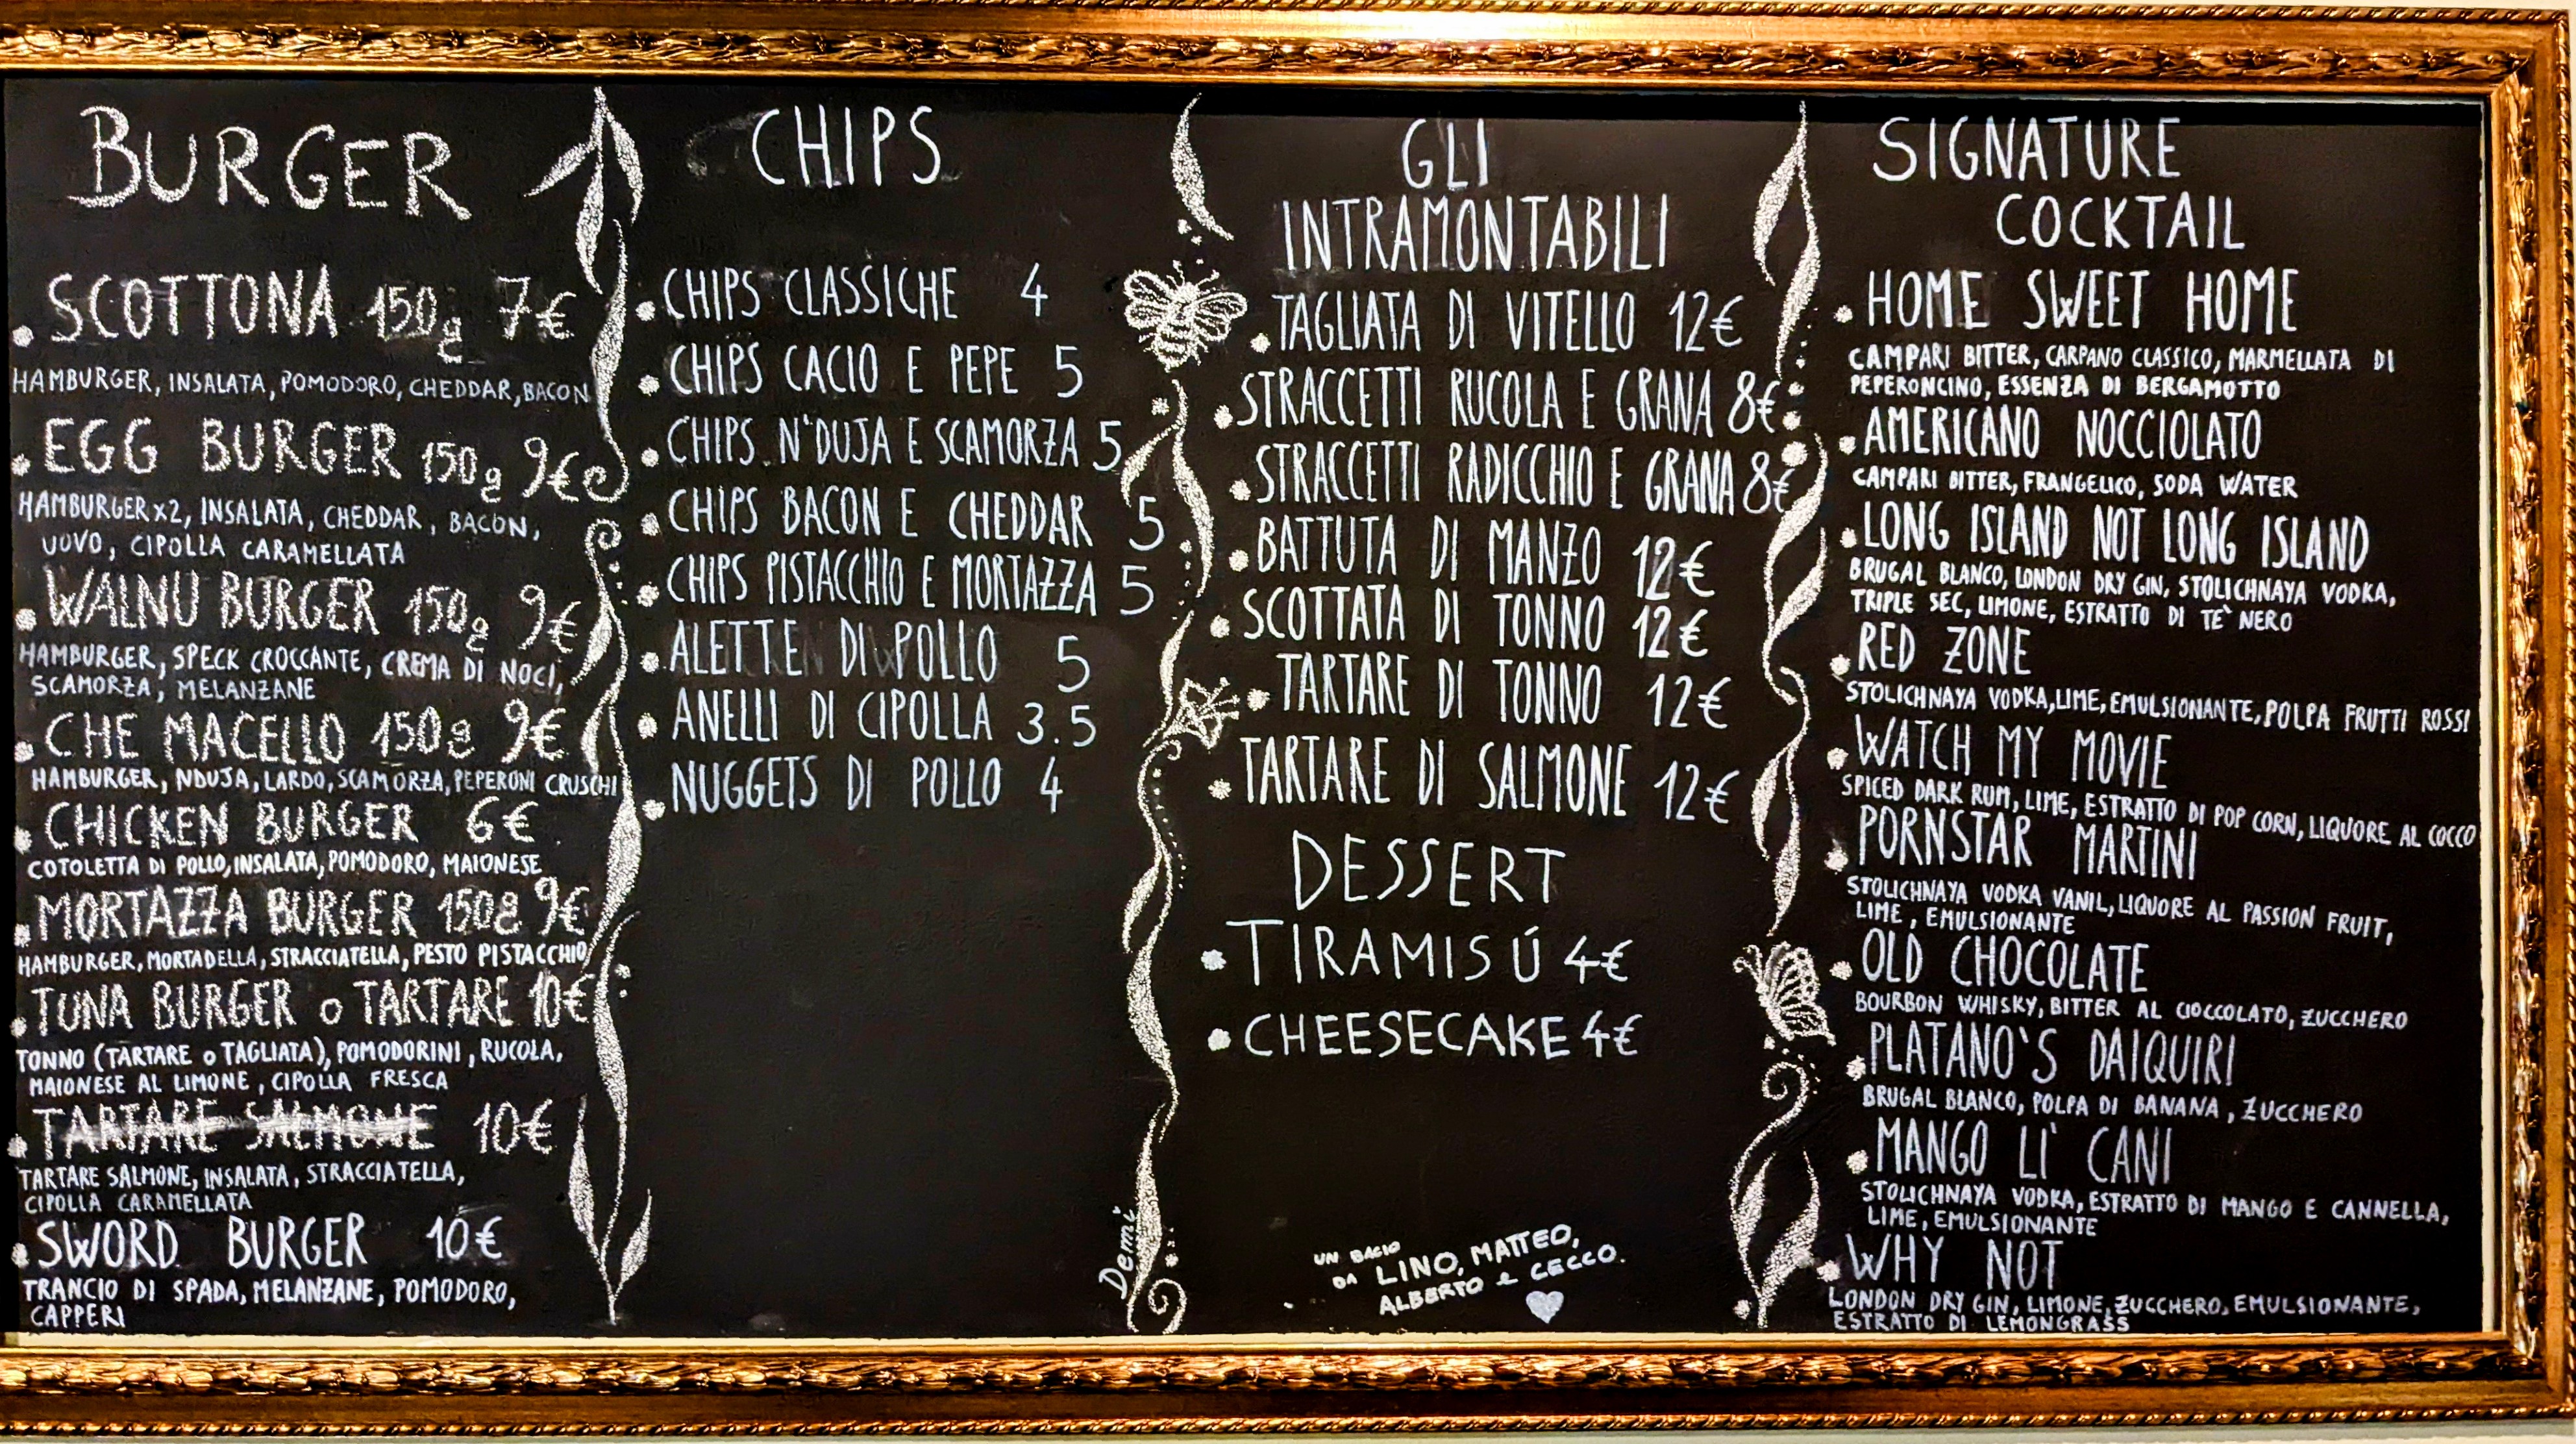 BURGER
SCOTTONA 150g 7€
HAMBURGER, INSALATA, POMODORO, CHEDDAR, BACON
EGG BURGER 150g 9€
HAMBURGER x2, INSALATA, CHEDDAR, BACON,
UOVO, CIPOLLA CARAMELLATA
WALNU BURGER 150g 9€
HAMBURGER, SPECK CROCCANTE, CREMA DI NOCI,
SCAMORZA, MELANZANE
CHE MACELLO 150g 9€
HAMBURGER, NDUJA, LARDO, SCAMORZA, PEPERONI CRUSCHI
CHICKEN BURGER 6€
COTOLETTA DI POLLO, INSALATA, POMODORO, MAIONESE
MORTAZZA BURGER 150g 9€
HAMBURGER, MORTADELLA, STRACCIATELLA, PESTO PISTACCHIO
TUNA BURGER o TARTARE 10€
TONNO (TARTARE o TAGLIATA), POMODORINI, RUCOLA,
MAIONESE AL LIMONE, CIPOLLA FRESCA
TARTARE SALMONE 10€
TARTARE SALMONE, INSALATA, STRACCIATELLA,
CIPOLLA CARAMELLATA
SWORD BURGER 10€
TRANCIO DI SPADA, MELANZANE, POMODORO,
CAPPERI
CHIPS
CHIPS CLASSICHE 4
CHIPS CACIO E PEPE 5
CHIPS N'DUJA E SCAMORZA 5
CHIPS BACON E CHEDDAR 5
CHIPS PISTACCHIO E MORTAZZA 5
ALETTE DI POLLO 5
ANELLI DI CIPOLLA 3.5
NUGGETS DI POLLO 4
Demi
GLI
INTRAMONTABILI
TAGLIATA DI VITELLO 12€
STRACCETTI RUCOLA E GRANA 8€
STRACCETTI RADICCHIO E GRANA 8€
BATTUTA DI MANZO 12€
SCOTTATA DI TONNO 12€
TARTARE DI TONNO 12€
TARTARE DI SALMONE 12€
DESSERT
TIRAMISÚ 4€
CHEESECAKE 4€
UN BACIO
DA LINO, MATTEO,
ALBERTO e CECCO.
SIGNATURE
COCKTAIL
HOME SWEET HOME
CAMPARI BITTER, CARPANO CLASSICO, MARMELLATA DI
PEPERONCINO, ESSENZA DI BERGAMOTTO
AMERICANO NOCCIOLATO
CAMPARI BITTER, FRANGELICO, SODA WATER
LONG ISLAND NOT LONG ISLAND
BRUGAL BLANCO, LONDON DRY GIN, STOLICHNAYA VODKA,
TRIPLE SEC, LIMONE, ESTRATTO DI TE` NERO
RED ZONE
STOLICHNAYA VODKA, LIME, EMULSIONANTE, POLPA FRUTTI ROSSI
WATCH MY MOVIE
SPICED DARK RUM, LIME, ESTRATTO DI POP CORN, LIQUORE AL COCCO
PORNSTAR MARTINI
STOLICHNAYA VODKA VANIL, LIQUORE AL PASSION FRUIT,
LIME, EMULSIONANTE
OLD CHOCOLATE
BOURBON WHISKY, BITTER AL CIOCCOLATO, ZUCCHERO
PLATANO'S DAIQUIRI
BRUGAL BLANCO, POLPA DI BANANA, ZUCCHERO
MANGO LI' CANI
STOLICHNAYA VODKA, ESTRATTO DI MANGO E CANNELLA,
LIME, EMULSIONANTE
WHY NOT
LONDON DRY GIN, LIMONE, ZUCCHERO, EMULSIONANTE,
ESTRATTO DI LEMONGRASS